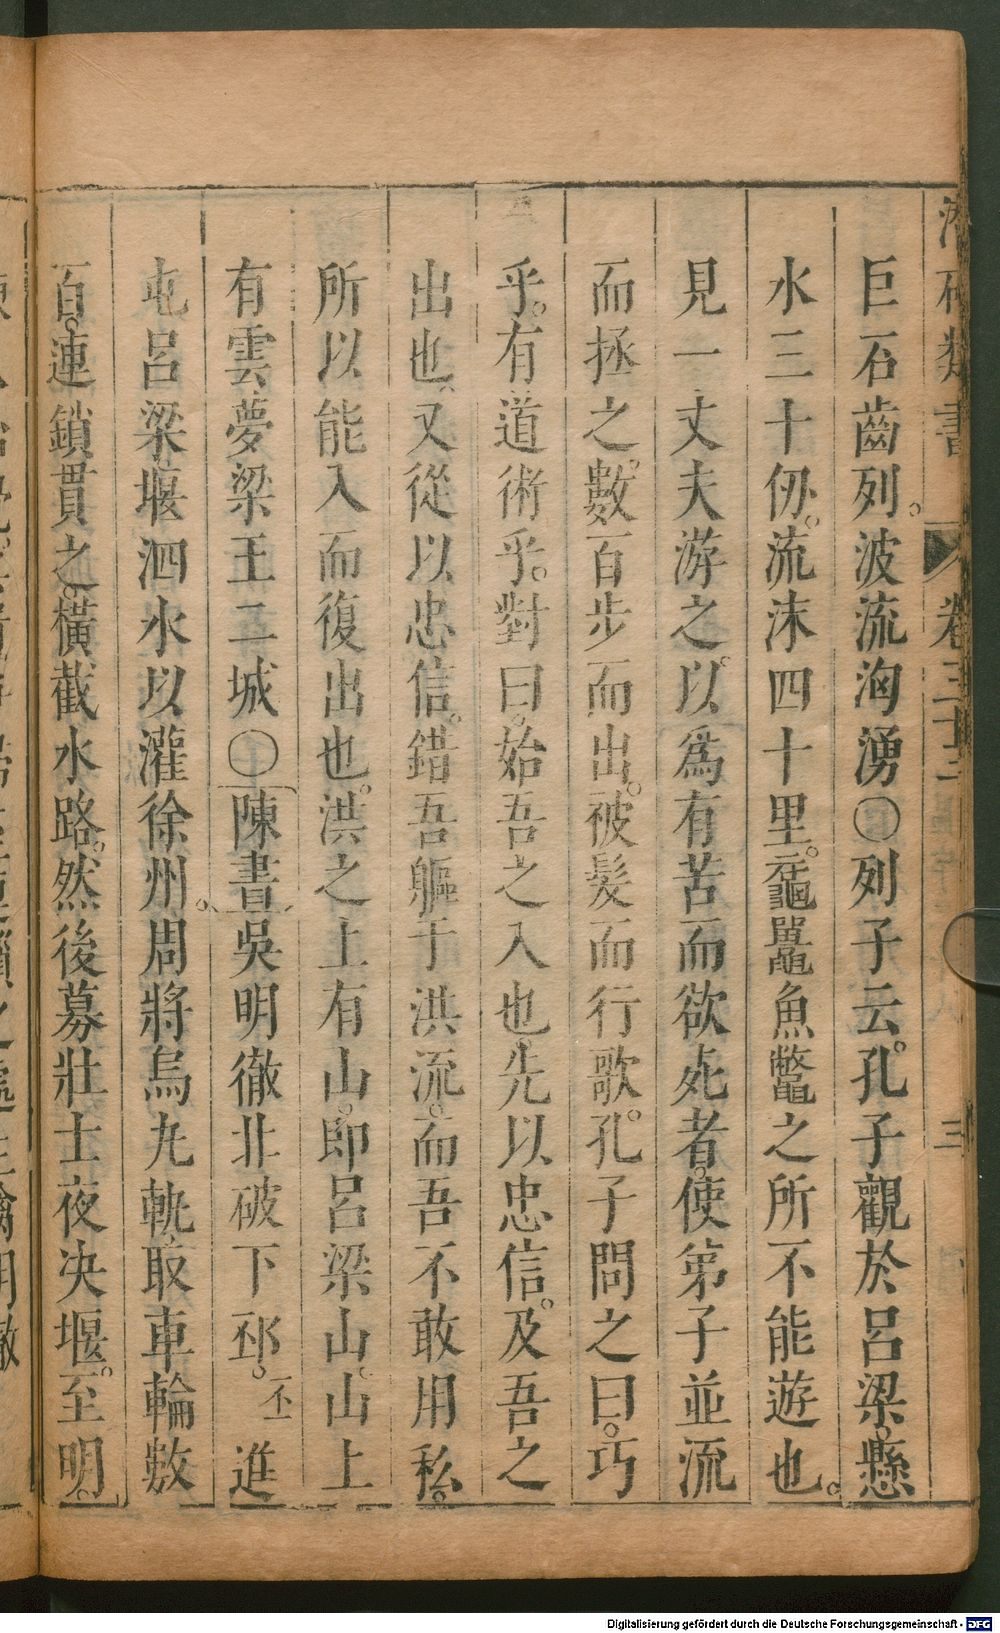 潛確類書 卷三十三 三
巨石齒列。波流洶湧〇列子云。孔子觀於呂梁。懸
水三十仭。流沫四十里。黿鼉魚鼈之所不能遊也。
見一丈夫游之。以爲有苦而欲死者。使弟子並流
而拯之。數百步而出。被髮而行歌。孔子問之曰。巧
乎。有道術乎。對曰。始吾之入也。先以忠信。及吾之
出也。又從以忠信。錯吾軀于洪流。而吾不敢用私。
所以能入而復出也。洪之上有山。即呂梁山。山上
有雲夢梁王二城〇陳書吳明徹北破下邳。丕一進
屯呂梁堰泗水以灌徐州。周將烏丸軌取車輪數
百。連鎖貫之。橫截水路。然後募壯士夜决堰。至明。
Digitalisierung gefördert durch die Deutsche Forschungsgemeinschaft - DFG